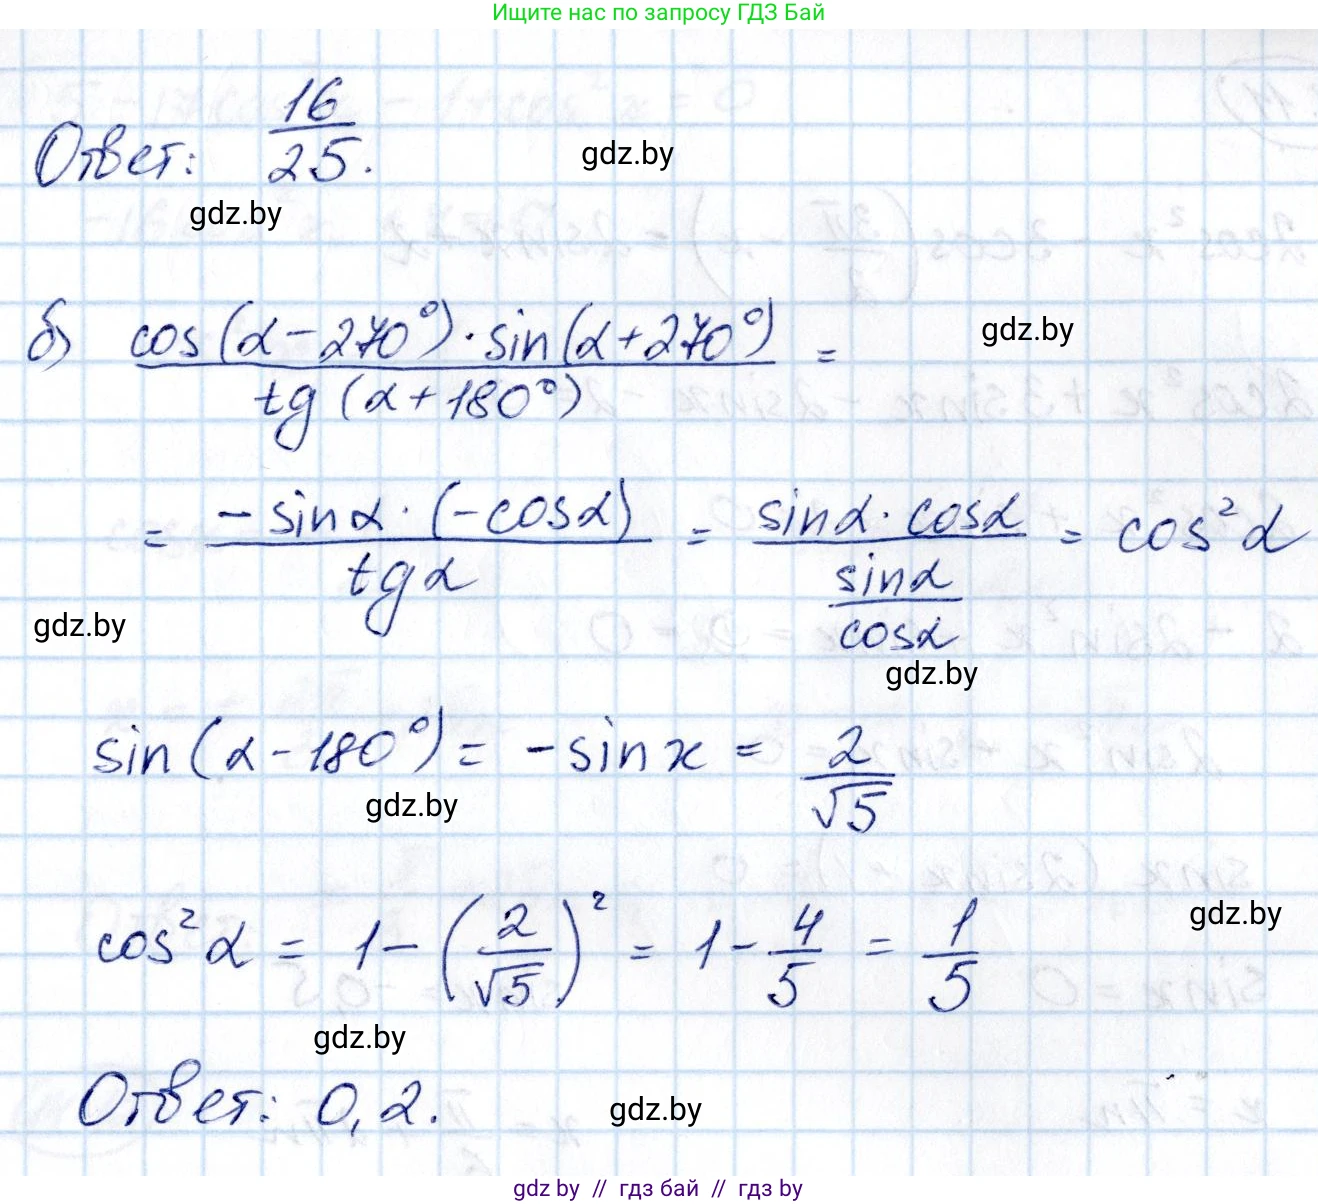 Ищите нас по запросу ГДЗ Бай
Ответ: 16/25.
gdz.by
gdz.by
б) (cos(α-270°)·sin(α+270°))/(tg(α+180°)) =
gdz.by
= (-sinα·(-cosα))/(tgα) = (sinα·cosα)/(sinα/cosα) = cos²α
gdz.by
gdz.by
sin(α-180°) = -sin x = 2/√5
gdz.by
cos²α = 1-(2/√5)² = 1-4/5 = 1/5
gdz.by
gdz.by
Ответ: 0,2.
gdz.by
gdz by // гдз бай // гдз by